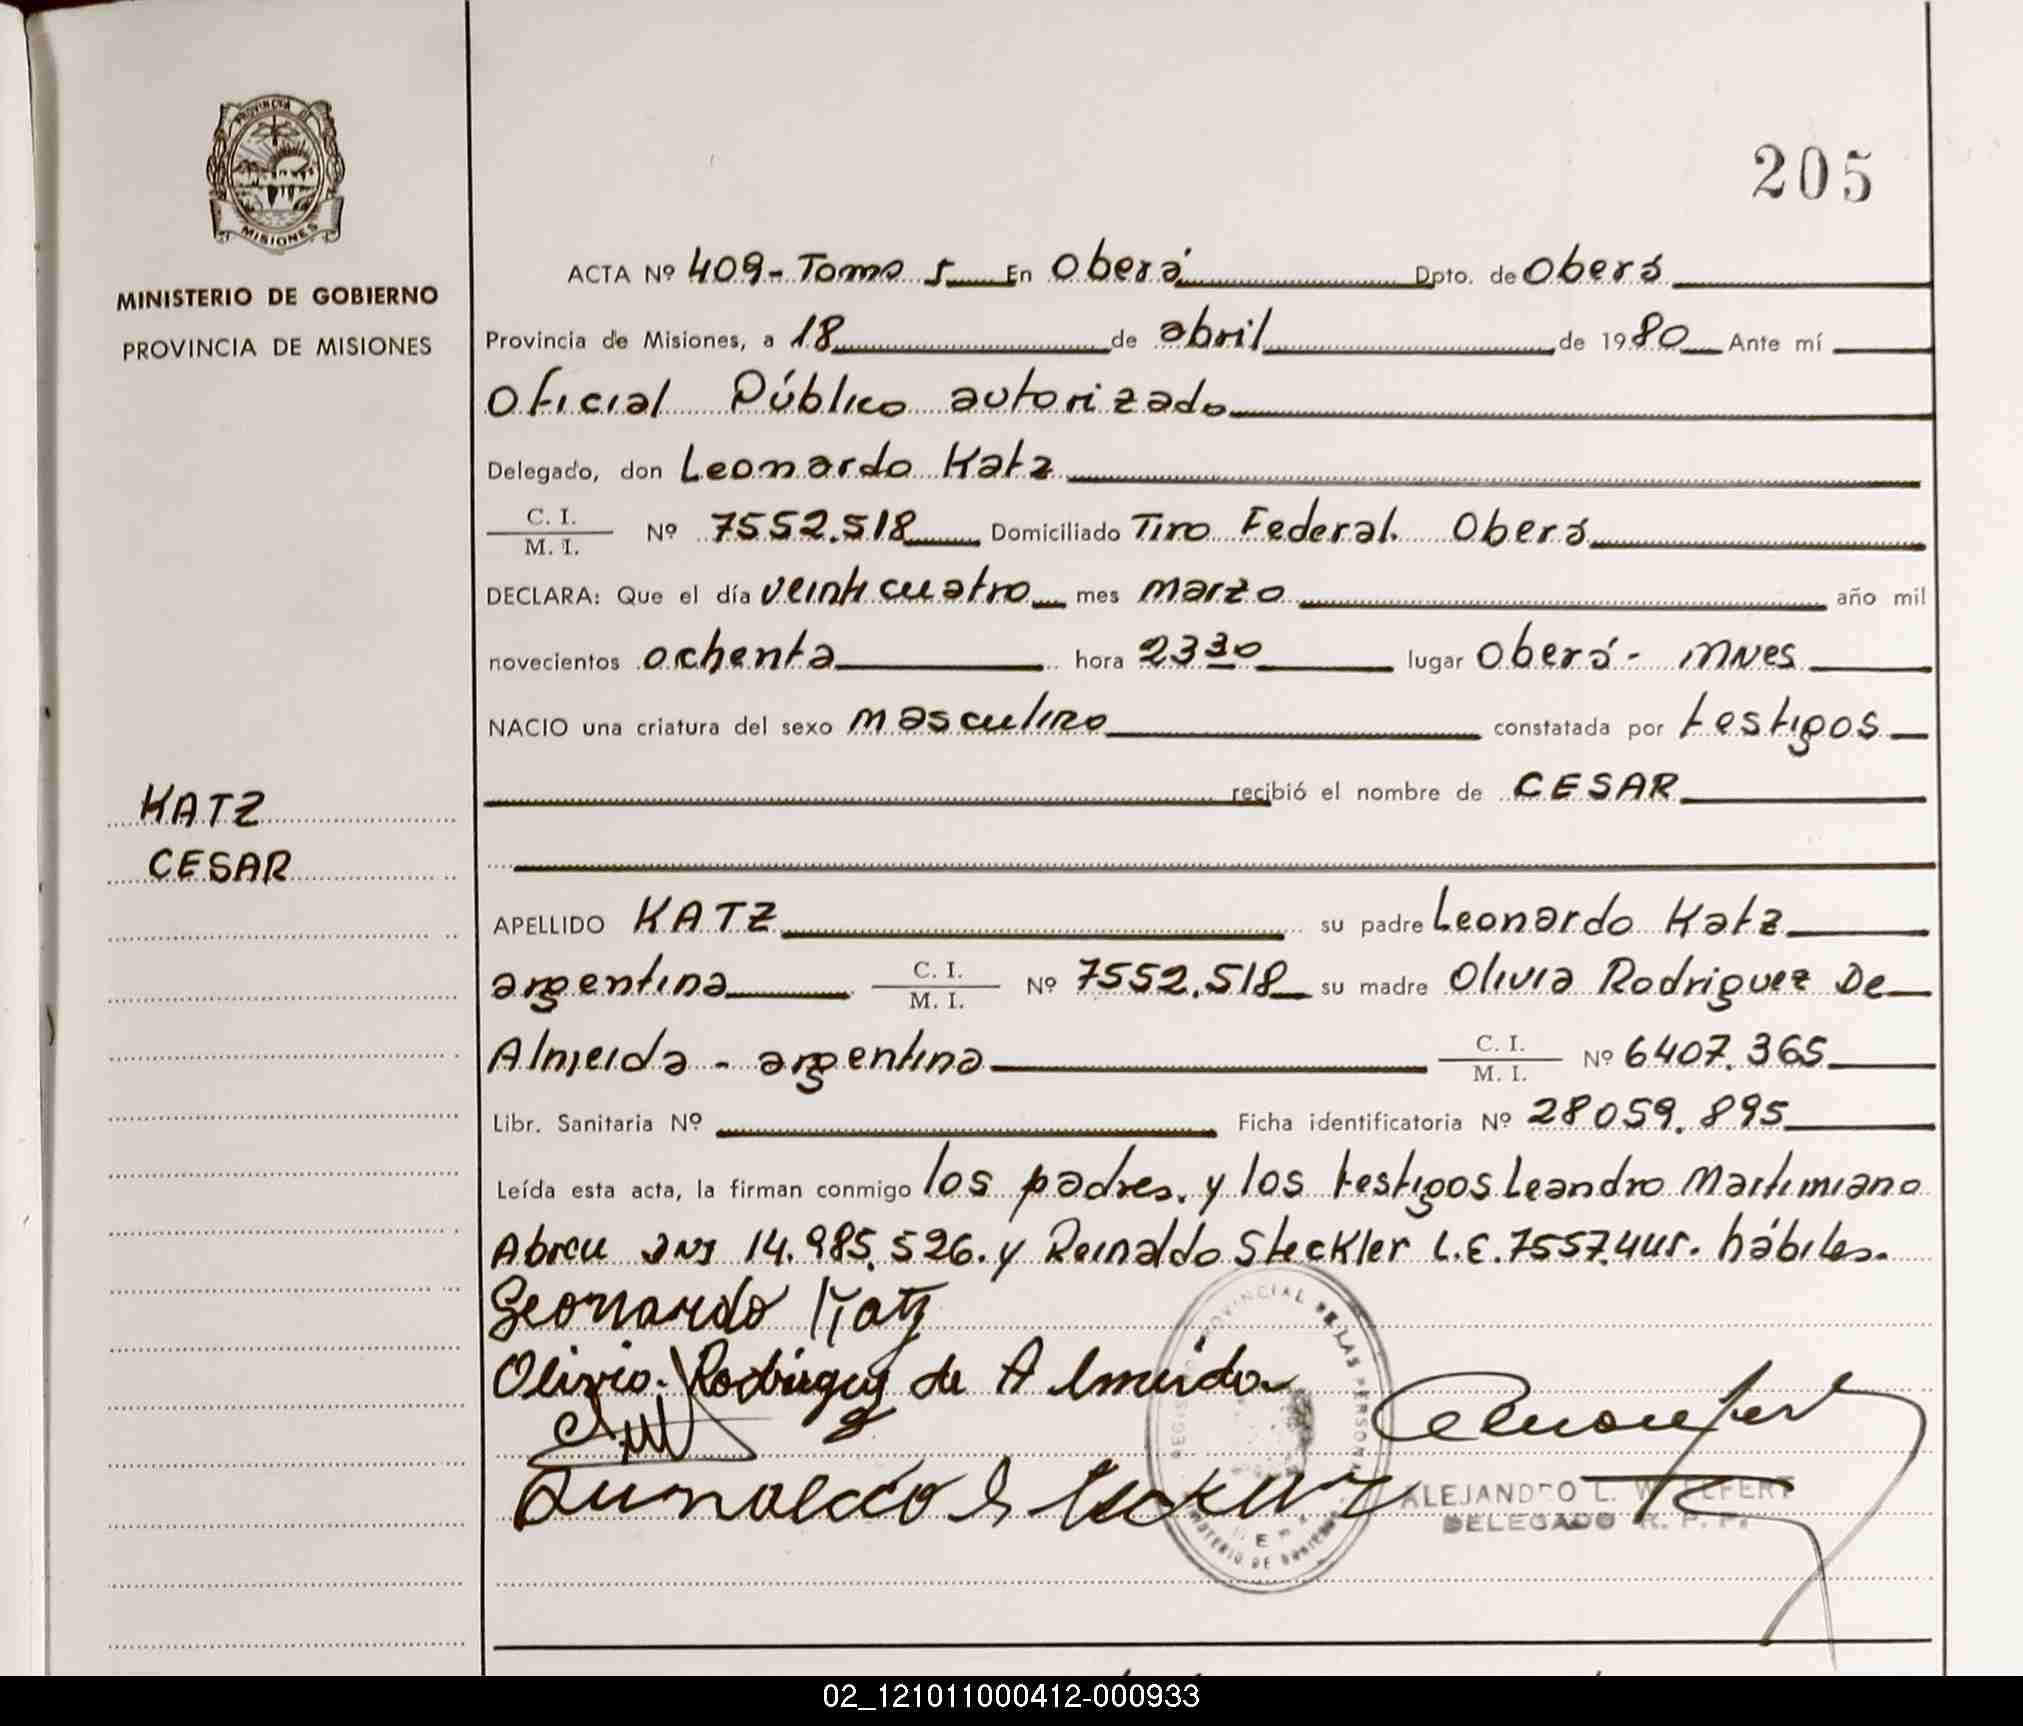 205
PROVINCIA DE
MISIONES
MINISTERIO DE GOBIERNO
PROVINCIA DE MISIONES
KATZ
CESAR
ACTA Nº 409- Tomo 5 En Oberá Dpto. de Oberá
Provincia de Misiones, a 18 de abril de 1980 Ante mí
Oficial Público autorizado
Delegado, don Leonardo Katz
C. I.
M. I. Nº 7552.518 Domiciliado Tiro Federal. Oberá
DECLARA: Que el día veinticuatro mes marzo año mil
novecientos ochenta hora 23 30 lugar Oberá - Mnes
NACIO una criatura del sexo masculino constatada por testigos
recibió el nombre de CESAR
APELLIDO KATZ su padre Leonardo Katz
argentina C. I. M. I. Nº 7552.518 su madre Olivia Rodriguez De
Almeida - argentina C. I. M. I. Nº 6407.365
Libr. Sanitaria Nº Ficha identificatoria Nº 28059.895
Leída esta acta, la firman conmigo los padres. y los testigos Leandro Martimiano
Abreu DNI 14.985.526. y Reinaldo Steckler L.E. 7557.445. hábiles.
Leonardo Katz
Olivia Rodriguez de Almeida
REGISTRO PROVINCIAL DE LAS PERSONAS
MINISTERIO DE GOBIERNO
ALEJANDRO L.
DELEGADO R. P. P.
02_121011000412-000933